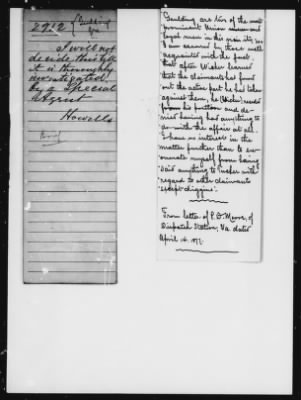 2912
I will not
decide this till
it is thoroughly
investigated
by a Special
Agent
Howells
Brief
Gaulding are two of the most
prominent Union men and
loyal men in this
I am assured by those well
acquainted with the facts,
that after learned
that the claimants had found
out the active part he had taken
against them, he
from his position and de-
nied having had anything to
do with the affair at all.
I have no interest in the
matter further than to ex-
onerate myself from having
said anything to with
regard to other claimants
except Higgins."
From letter of P. D. Moore, of
Dispatch Station, Va. dated
April 14, 1877.